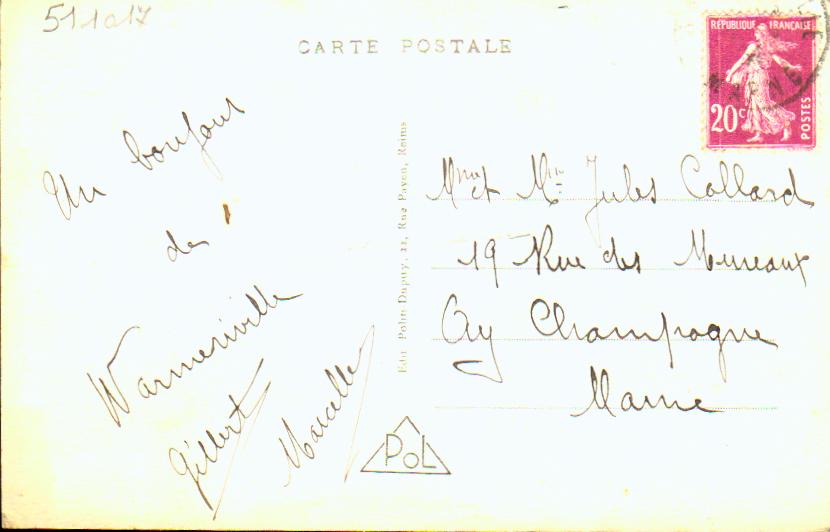 511017
CARTE POSTALE
RÉPUBLIQUE FRANÇAISE
20c
POSTES
Un bonjour
de
Warmeriville
Gilbert
Marcelle
Edit Polin Dupuy, 11, Rue Payen, Reims
Mme et Jules Collard
19 Rue des Mureaux
Ay Champagne
Marne
POL